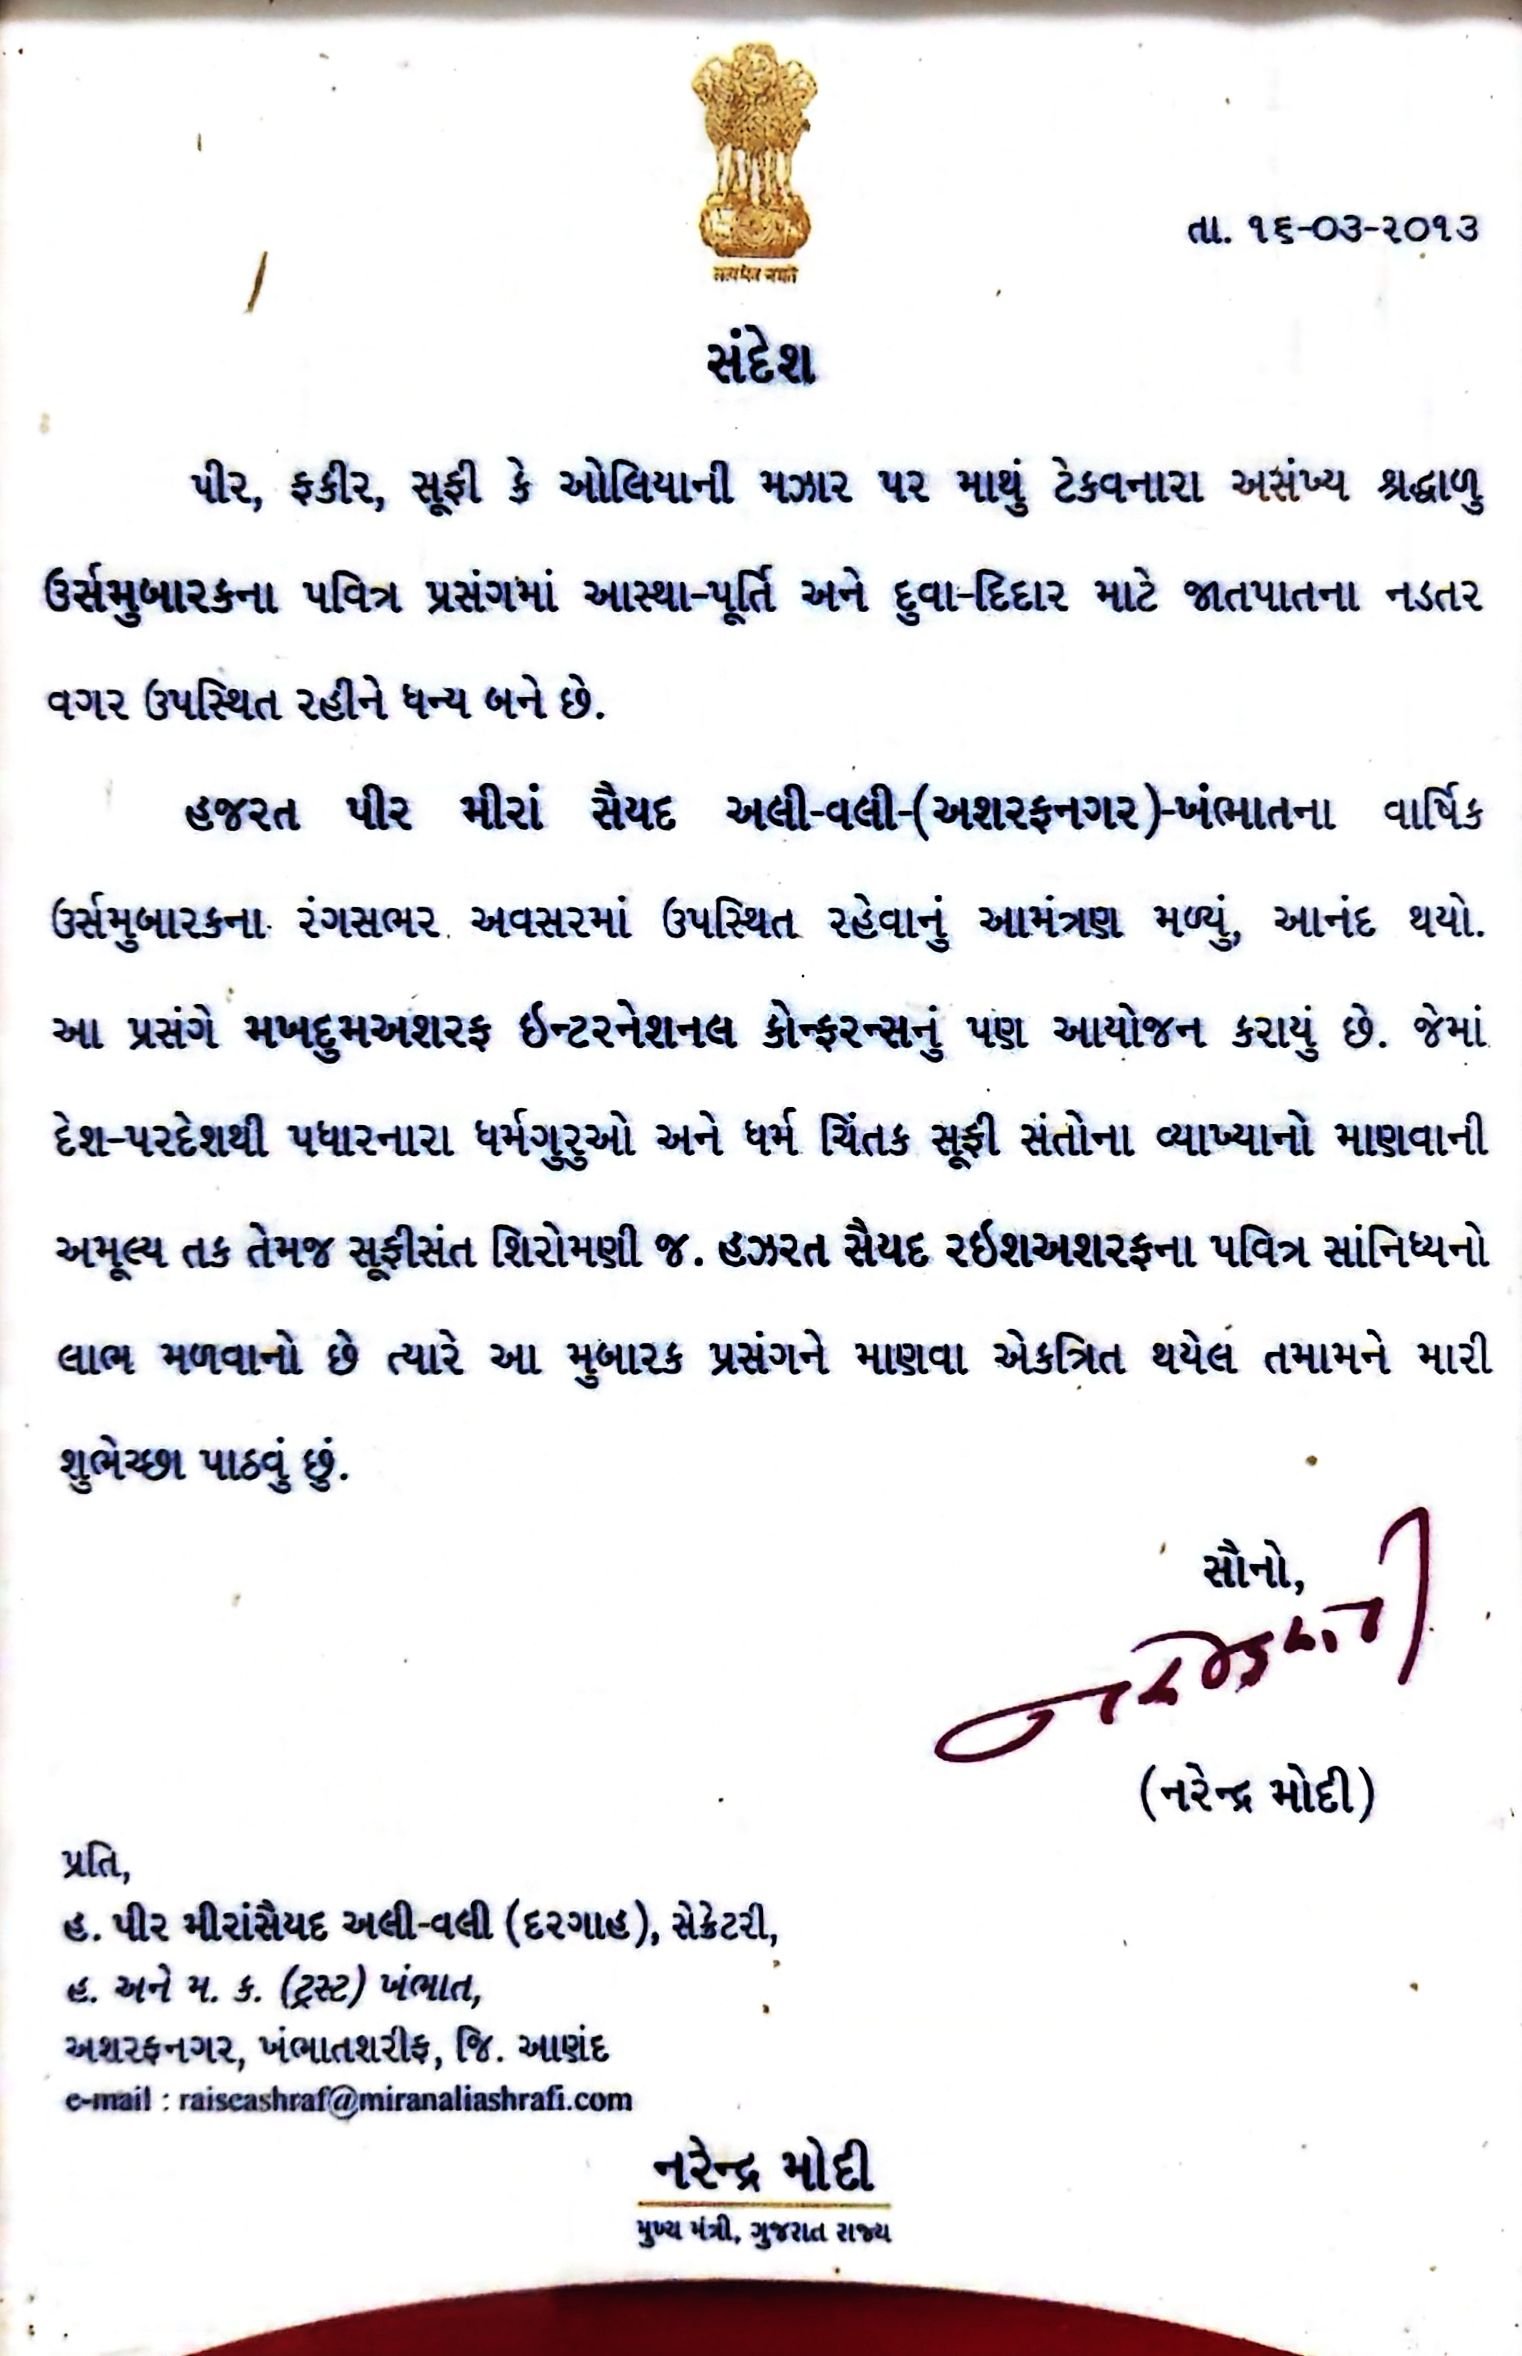 सत्यमेव जयते
તા. ૧૬-૦૩-૨૦૧૩
સંદેશ
પીર, ફકીર, સૂફી કે ઓલિયાની મઝાર પર માથું ટેકવનારા અસંખ્ય શ્રદ્ધાળુ
ઉર્સમુબારકના પવિત્ર પ્રસંગમાં આસ્થા-પૂર્તિ અને દુવા-દિદાર માટે જાતપાતના નડતર
વગર ઉપસ્થિત રહીને ધન્ય બને છે.
હજરત પીર મીરાં સૈયદ અલી-વલી-(અશરફનગર)-ખંભાતના વાર્ષિક
ઉર્સમુબારકના રંગસભર અવસરમાં ઉપસ્થિત રહેવાનું આમંત્રણ મળ્યું, આનંદ થયો.
આ પ્રસંગે મખદુમઅશરફ ઇન્ટરનેશનલ કોન્ફરન્સનું પણ આયોજન કરાયું છે. જેમાં
દેશ-પરદેશથી પધારનારા ધર્મગુરુઓ અને ધર્મ ચિંતક સૂફી સંતોના વ્યાખ્યાનો માણવાની
અમૂલ્ય તક તેમજ સૂફીસંત શિરોમણી જ. હઝરત સૈયદ રઇશઅશરફના પવિત્ર સાંનિધ્યનો
લાભ મળવાનો છે ત્યારે આ મુબારક પ્રસંગને માણવા એકત્રિત થયેલ તમામને મારી
શુભેચ્છા પાઠવું છું.
સૌનો,
નરેન્દ્ર મોદી
(નરેન્દ્ર મોદી)
પ્રતિ,
હ. પીર મીરાંસૈયદ અલી-વલી (દરગાહ), સેક્રેટરી,
હ. અને મ. ક. (ટ્રસ્ટ) ખંભાત,
અશરફનગર, ખંભાતશરીફ, જિ. આણંદ
e-mail : raiseashraf@miranaliashrafi.com
નરેન્દ્ર મોદી
મુખ્ય મંત્રી, ગુજરાત રાજ્ય